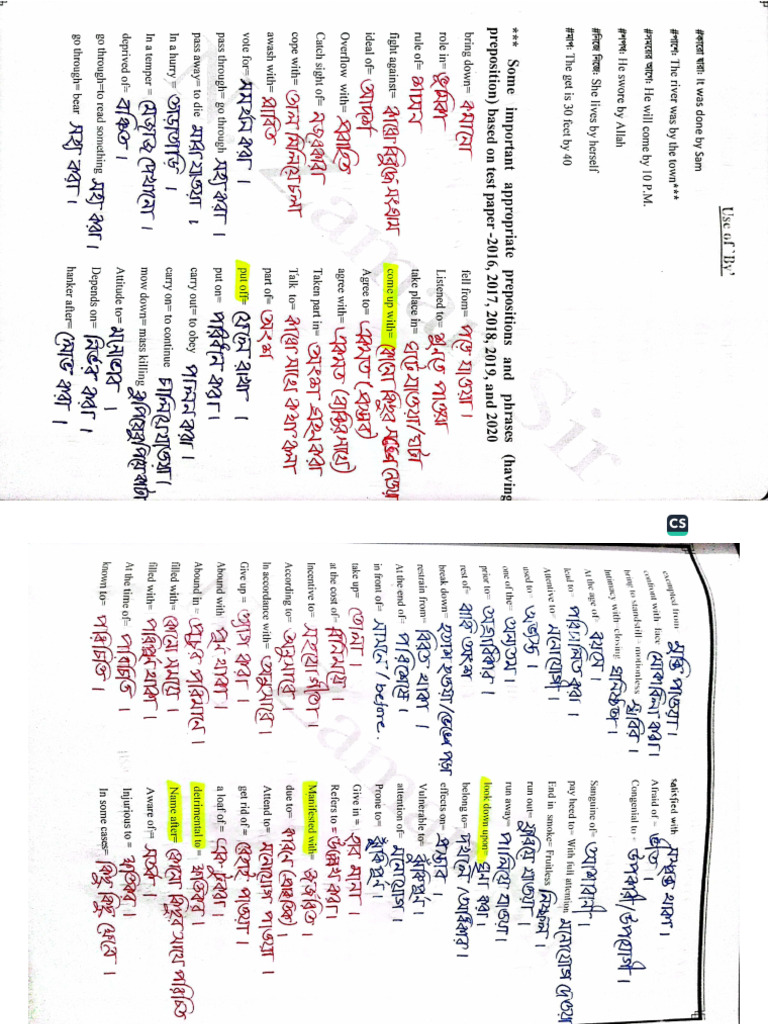 Use of 'By'
#কারো দ্বারা: It was done by Sam
#পাশে: The river was by the town***
#সময়ের আগে: He will come by 10 P.M.
#শপথ: He swore by Allah
#নিজে নিজে: She lives by herself
#মাপ: The get is 30 feet by 40
*** Some important appropriate prepositions and phrases (having preposition) based on test paper -2016, 2017, 2018, 2019, and 2020
bring down= কমানো
role in= ভূমিকা
rule of= শাসন
fight against= কারো বিরুদ্ধে সংগ্রাম
ideal of= আদর্শ
Overflow with= প্লাবিত
Catch sight of= নজরকারা
cope with= তাল মিলিয়ে চলা
awash with= প্লাবিত
vote for= সমর্থন করা।
pass through= go through সহ্য করা।
pass away= to die মারা যাওয়া।
In a hurry= তাড়াতাড়ি।
In a temper=
deprived of= বঞ্চিত।
go through=to read something সহ্য করা।
go through= bear সহ্য করা।
fell from= পড়ে যাওয়া।
Listened to= শুনতে পাওয়া
take place in= ঘটে যাওয়া/ঘটা
come up with= কোনো কিছুর
Agree to= একমত (প্রস্তাব)
agree with= একমত (ব্যক্তির সাথে)
Taken part in= অংশ গ্রহন করা
Talk to= কারো সাথে কথা বলা
part of= অংশ
put off= ফেলে রাখা।
put on= পরিধান করা।
carry out= to obey পালন করা।
carry on= to continue চালিয়ে যাওয়া।
mow down= mass killing
Attitude to= মনোভাব।
Depends on= নির্ভর করা।
hanker after= লোভ করা।
CS
exempted from মুক্তি পাওয়া।
confront with- face মোকাবিলা করা।
bring to standstill - motionless স্থবির।
Intimacy with - closing ঘনিষ্ঠতা।
At the age of= বয়সে।
lead to- পরিচালিত করা।
Attentive to- মনোযোগী।
used to= অভ্যস্ত।
one of the= অন্যতম।
prior to= অগ্রাধিকার।
rest of= বাকি অংশ
break down=
restrain from= বিরত থাকা।
At the end of= পরিশেষে।
in front of= সামনে/before.
take up= তোলা।
at the cost of= বিনিময়ে।
Incentive to=
According to= অনুসারে
In accordance with= অনুসারে।
Give up = ত্যাগ করা।
Abound with= পূর্ণ থাকা।
Abound in= প্রচুর পরিমানে।
filled with=
filled with= পরিপূর্ণ থাকা।
At the time of=
known to= পরিচিত।
satisfied with সন্তুষ্ট থাকা।
Afraid of - ভীত।
Congenial to - উপকারী/উপযোগী।
Sanguine of= আশাবাদী।
pay heed to- With full attention মনোযোগ দেওয়া
End in smoke= Fruitless নিষ্ফল।
run out= ফুরিয়ে যাওয়া।
run away= পালিয়ে যাওয়া।
look down upon= ঘৃনা করা।
belong to= দখলে/অধিকার।
effects on= প্রভাব।
Vulnerable to= ঝুঁকিপূর্ন।
attention of= মনোযোগ।
Prone to= ঝুঁকিপূর্ন।
Give in =
Refers to = উল্লেখ করা।
Manifested with= জর্জরিত।
due to= কারন
Attend to= মনোযোগ দেওয়া।
get rid of= রেহাই পাওয়া
a loaf of = এক টুকরা।
detrimental to = ক্ষতিকর
Name after= কোনো কিছুর সাথে পরিচিত
Aware of= সতর্ক।
Injurious to = ক্ষতিকর।
In some cases= কিছু কিছু ক্ষেত্রে।